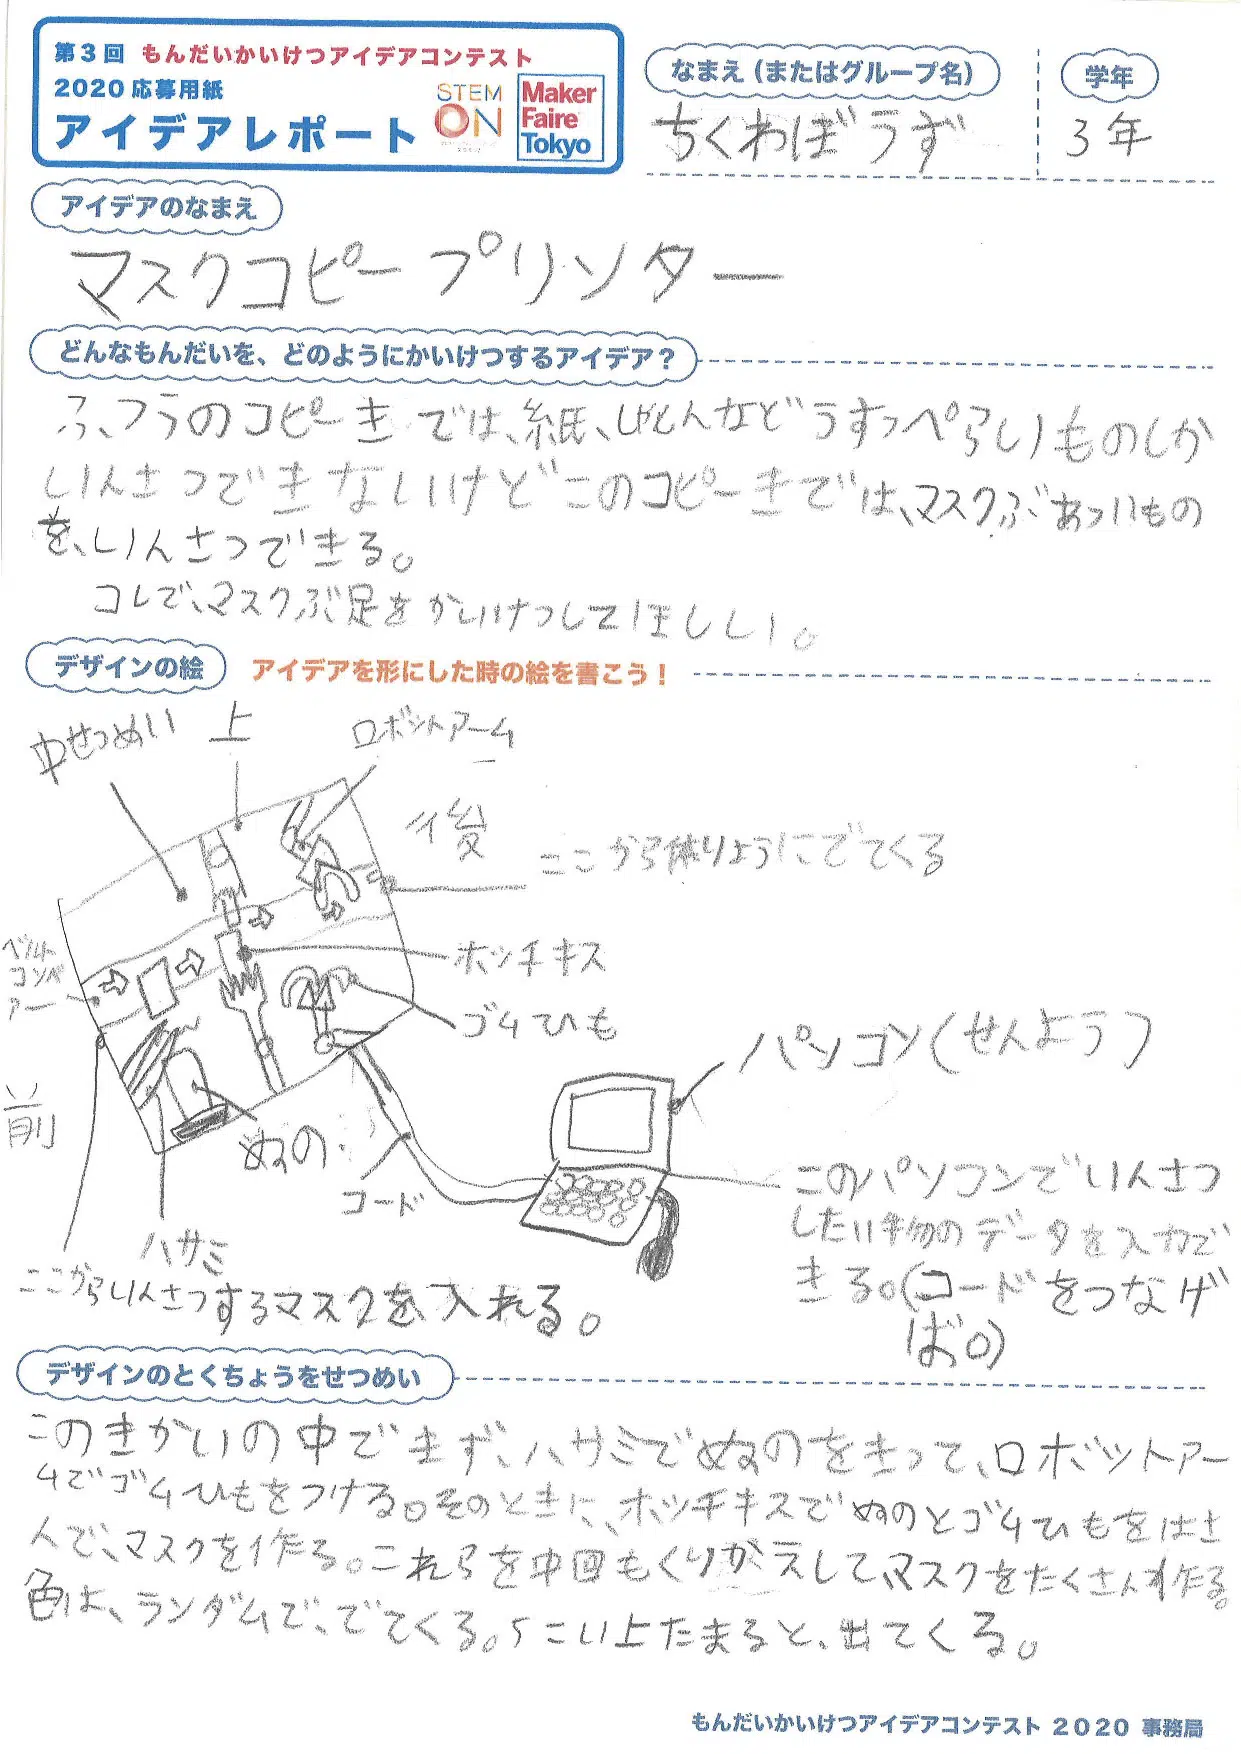 第3回 もんだいかいけつアイデアコンテスト
2020応募用紙
アイデアレポート
STEM
ON
Maker
Faire
Tokyo
なまえ(またはグループ名)
ちくわぼうず
学年
3年
アイデアのなまえ
マスクコピープリンター
どんなもんだいを、どのようにかいけつするアイデア?
ふつうのコピーきでは、紙、しゃしんなどうすっぺらいものしか
いんさつできないけどこのコピーきでは、マスクぶあついもの
を、いんさつできる。
コレで、マスクぶ足をかいけつしてほしい。
デザインの絵
アイデアを形にした時の絵を書こう!
中せつめい
上
ロボットアーム
後
ここから体りようにでてくる
ベルト
コンベ
アー
ホッチキス
ゴムひも
前
パソコン(せんよう)
ぬの
コード
ハサミ
ここからいんさつするマスクを入れる。
このパソコンでいんさつ
したい物のデータを入力で
きる。(コードをつなげ
ば。)
デザインのとくちょうをせつめい
このきかいの中でまず、ハサミでぬのをきって、ロボットアー
ムでゴムひもをつける。そのときに、ホッチキスでぬのとゴムひもをはさ
んで、マスクを作る。これらを中回もくりがえしてマスクをたくさん作る。
色は、ランダムで、でてくる。5こい上たまると、出てくる。
もんだいかいけつアイデアコンテスト 2020 事務局